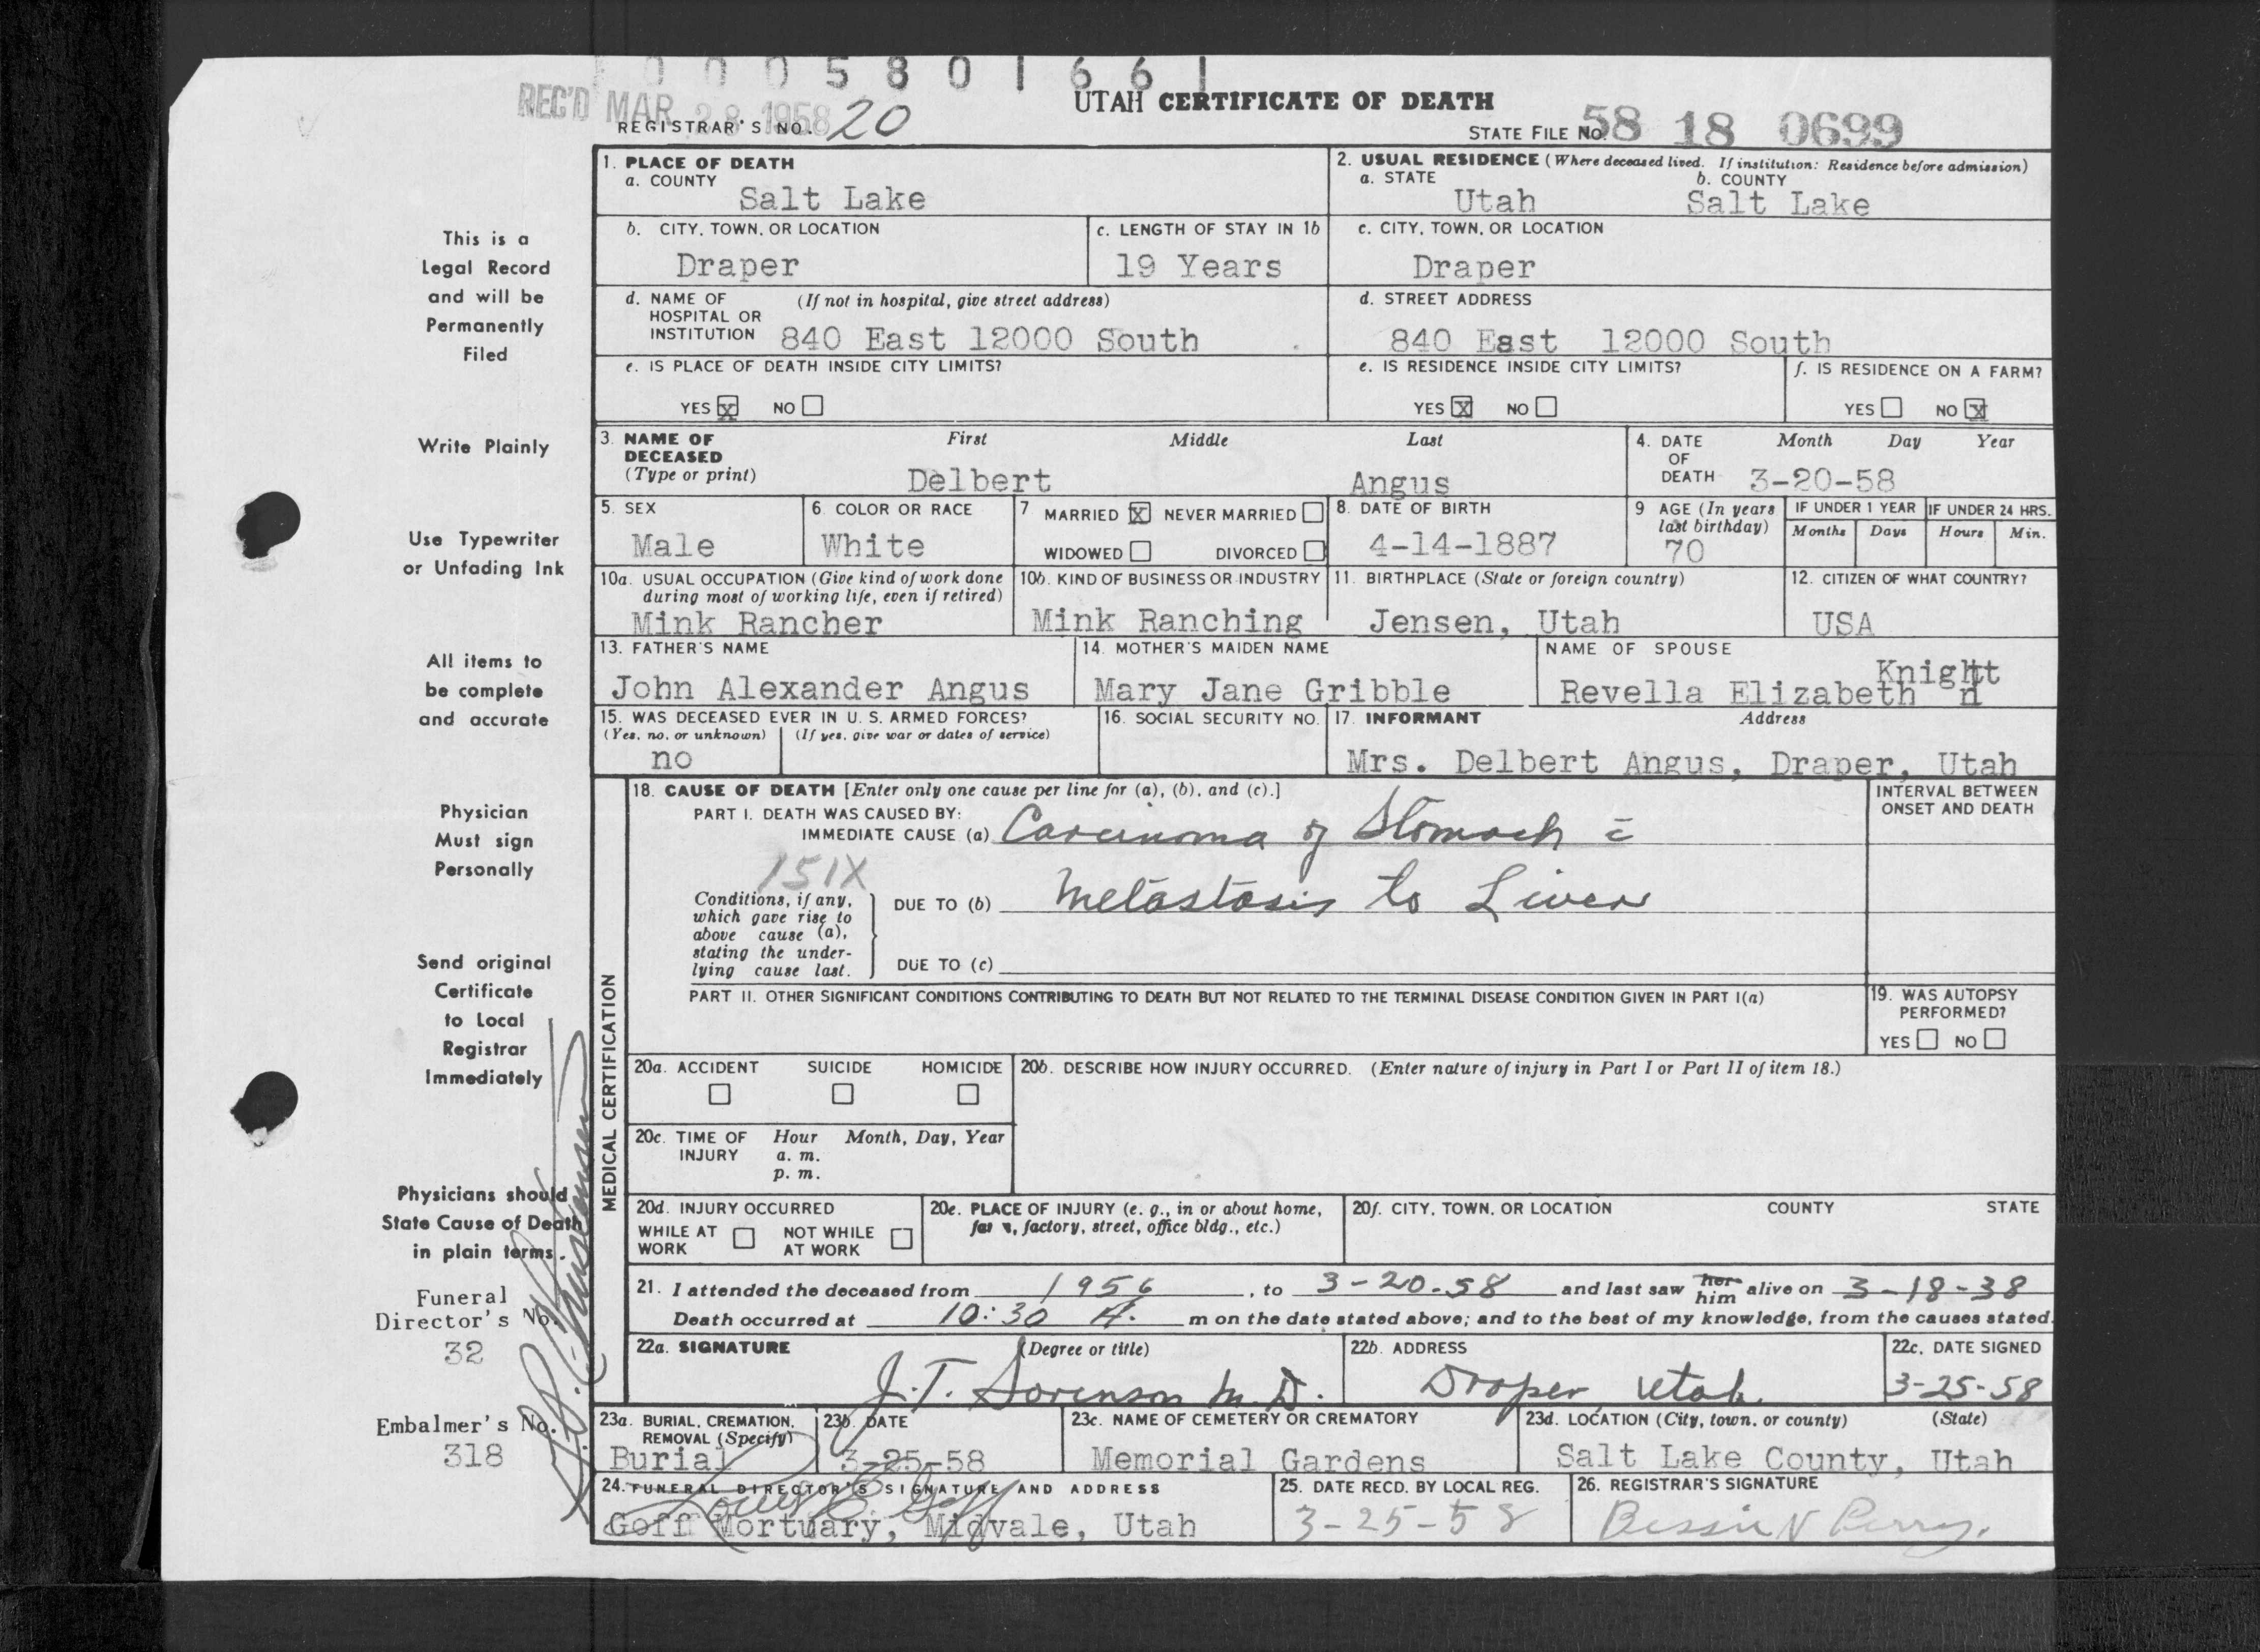 0 0 0 5 8 0 1 6 6 1
REC'D MAR 28 1958
UTAH CERTIFICATE OF DEATH
REGISTRAR'S NO. 20
STATE FILE NO. 58 18 0699
1. PLACE OF DEATH
a. COUNTY
Salt Lake
2. USUAL RESIDENCE (Where deceased lived. If institution: Residence before admission)
a. STATE b. COUNTY
Utah Salt Lake
b. CITY, TOWN, OR LOCATION
Draper
c. LENGTH OF STAY IN 1b
19 Years
c. CITY, TOWN, OR LOCATION
Draper
d. NAME OF (If not in hospital, give street address)
HOSPITAL OR
INSTITUTION 840 East 12000 South
d. STREET ADDRESS
840 East 12000 South
e. IS PLACE OF DEATH INSIDE CITY LIMITS?
YES X NO
e. IS RESIDENCE INSIDE CITY LIMITS?
YES X NO
f. IS RESIDENCE ON A FARM?
YES NO X
3. NAME OF DECEASED
(Type or print)
First Middle Last
Delbert Angus
4. DATE OF DEATH
Month Day Year
3-20-58
5. SEX
Male
6. COLOR OR RACE
White
7 MARRIED X NEVER MARRIED
WIDOWED DIVORCED
8. DATE OF BIRTH
4-14-1887
9 AGE (In years last birthday)
70
IF UNDER 1 YEAR
Months Days
IF UNDER 24 HRS.
Hours Min.
10a. USUAL OCCUPATION (Give kind of work done
during most of working life, even if retired)
Mink Rancher
10b. KIND OF BUSINESS OR INDUSTRY
Mink Ranching
11. BIRTHPLACE (State or foreign country)
Jensen, Utah
12. CITIZEN OF WHAT COUNTRY?
USA
13. FATHER'S NAME
John Alexander Angus
14. MOTHER'S MAIDEN NAME
Mary Jane Gribble
NAME OF SPOUSE
Knight
Revella Elizabeth
15. WAS DECEASED EVER IN U. S. ARMED FORCES?
(Yes, no, or unknown) (If yes, give war or dates of service)
no
16. SOCIAL SECURITY NO.
17. INFORMANT Address
Mrs. Delbert Angus, Draper, Utah
MEDICAL CERTIFICATION
18. CAUSE OF DEATH [Enter only one cause per line for (a), (b), and (c).]
INTERVAL BETWEEN
ONSET AND DEATH
PART I. DEATH WAS CAUSED BY:
IMMEDIATE CAUSE (a) Carcinoma of Stomach c̄
151X
Conditions, if any,
which gave rise to
above cause (a),
stating the under-
lying cause last.
DUE TO (b) Metastasis to Liver
DUE TO (c)
PART II. OTHER SIGNIFICANT CONDITIONS CONTRIBUTING TO DEATH BUT NOT RELATED TO THE TERMINAL DISEASE CONDITION GIVEN IN PART I(a)
19. WAS AUTOPSY
PERFORMED?
YES NO
20a. ACCIDENT SUICIDE HOMICIDE
20b. DESCRIBE HOW INJURY OCCURRED. (Enter nature of injury in Part I or Part II of item 18.)
20c. TIME OF INJURY
Hour Month, Day, Year
a. m.
p. m.
20d. INJURY OCCURRED
WHILE AT WORK NOT WHILE AT WORK
20e. PLACE OF INJURY (e. g., in or about home,
factory, street, office bldg., etc.)
20f. CITY, TOWN, OR LOCATION COUNTY STATE
21. I attended the deceased from 1956, to 3-20-58 and last saw her him alive on 3-18-38
Death occurred at 10:30 A. m on the date stated above; and to the best of my knowledge, from the causes stated.
22a. SIGNATURE (Degree or title)
J. T. Sorenson M. D.
22b. ADDRESS
Draper Utah
22c. DATE SIGNED
3-25-58
23a. BURIAL, CREMATION,
REMOVAL (Specify)
Burial
23b. DATE
3-25-58
23c. NAME OF CEMETERY OR CREMATORY
Memorial Gardens
23d. LOCATION (City, town, or county) (State)
Salt Lake County, Utah
24. FUNERAL DIRECTOR'S SIGNATURE AND ADDRESS
Goff Mortuary, Midvale, Utah
25. DATE RECD. BY LOCAL REG.
3-25-58
26. REGISTRAR'S SIGNATURE
Bessie N Perry.
This is a
Legal Record
and will be
Permanently
Filed
Write Plainly
Use Typewriter
or Unfading Ink
All items to
be complete
and accurate
Physician
Must sign
Personally
Send original
Certificate
to Local
Registrar
Immediately
Physicians should
State Cause of Death
in plain terms.
Funeral
Director's No.
32
Embalmer's No.
318